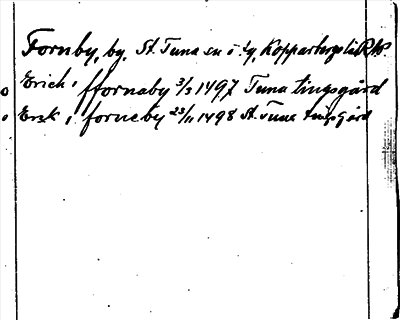 Fornby, by, St. Tuna sn o. tg, Kopparbergs län RAP
Erich i ffornaby 3/3 1497 Tuna tingsgård
Ersk i forneby 23/11 1498 St. Tuna tingsgård